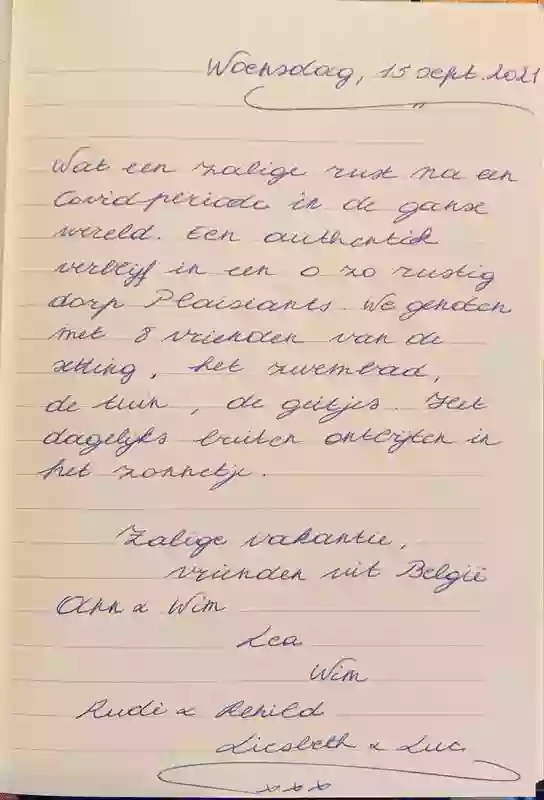 Woensdag, 15 sept. 2021
Wat een zalige rust na een
Covidperiode in de ganse
wereld. Een authentiek
verblijf in een o zo rustig
dorp Plaisiants. We genoten
met 8 vrienden van de
setting, het zwembad,
de tuin, de geitjes. Het
dagelijks buiten ontbijten in
het zonnetje.
Zalige vakantie,
vrienden uit België
Ann & Wim
Lea
Wim
Rudi & Rehild
Liesbeth & Luc
xxx